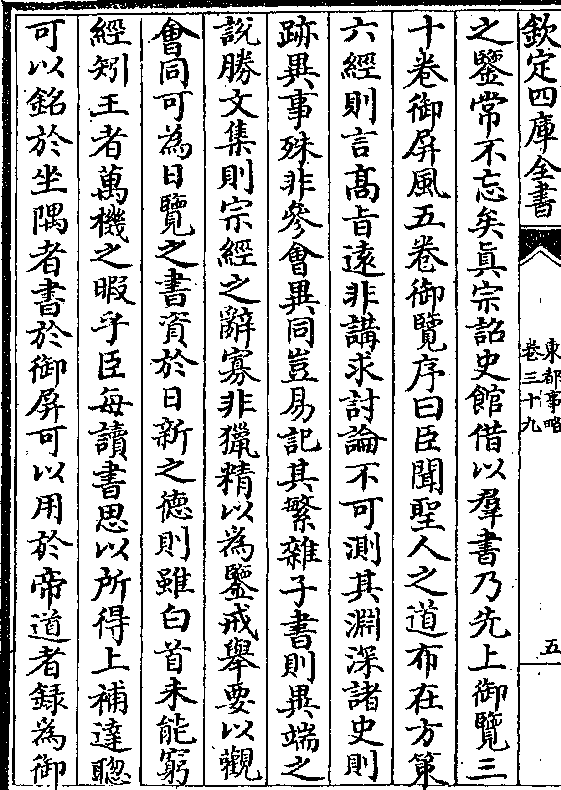 欽定四庫全書
東都事略
卷三十九
五
之鑒常不忘矣真宗詔史館借以羣書乃先上御覽三
十卷御屏風五卷御覽序曰臣聞聖人之道布在方策
六經則言高旨遠非講求討論不可測其淵深諸史則
跡異事殊非參會異同豈易記其繁雜子書則異端之
說勝文集則宗經之辭寡非獵精以為鑒戒舉要以觀
會同可為日覽之書資於日新之德則雖白首未能窮
經矧王者萬機之暇乎臣每讀書思以所得上補達聦
可以銘於坐隅者書於御屏可以用於帝道者録為御